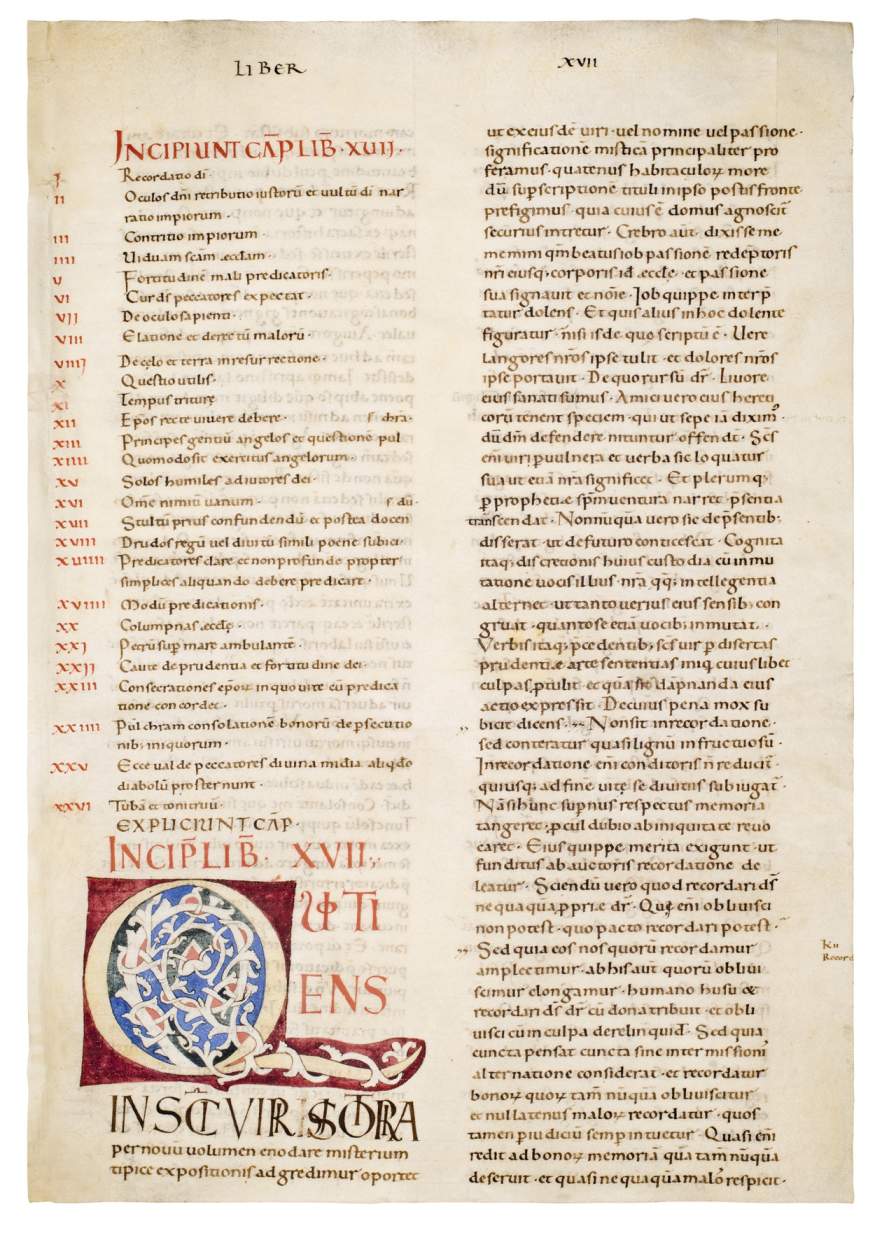 LIBER XVII
INCIPIUNT CAP̄ LIB̄ · XVII ·
I Recordatio dī ·
II Oculos dn̄i retributio iustorū et uultū dī nar
ratio impiorum ·
III Contritio impiorum ·
IIII Uiduam scām æcclam ·
V Fortitudinē mali predicatoris ·
VI Cur dš peccatores expectat ·
VII De oculo sapienti ·
VIII Elatione et deiectū malorū ·
VIIII De celo et terra in resurrectione ·
X Questio utilis ·
XI Tempus triturę
XII Ep̄os recte uiuere debere · chra ·
XIII Principes gentiū angelos et questionē pul
XIIII Quomodo sit exercitus angelorum ·
XV Solos humiles adiutores dei ·
XVI Om̄e nimiū uanum · dū ·
XVII Stultū prius confundendū et postea docen
XVIII Dru dos regū uel diuitū simili poenę subici ·
XVIIII Predicatores clare et non profunde propter
simplices aliquando debere predicare ·
XVIIII Modū predicationis ·
XX Columpnas æcclę ·
XXI Petrū sup̄ mare ambulantē ·
XXII Caute de prudentia et fortitudine dei ·
XXIII Consecrationes ep̄oꝝ in quo uite cū predica
tione concordet ·
XXIIII Pulchram consolationē bonorū de p̱secutio
nib; iniquorum ·
XXV Ecce ualde peccatores diuina mīdia aliq̄do
diabolū prosternunt ·
XXVI Tubā et tonitruū ·
EXPLICIUNT CAP̄ ·
INCIP̄ LIB̄ · XVII ·,
QUOTI
ENS
IN SC̄I VIRI HISTORIA
per nouū uolumen enodare misterium
tipice expositionis adgredimur oportet
ut ex eius dē uiri · uel nomine uel passione ·
significationē misticā principaliter pro
feramus · quatenus habitaculoꝝ more
dū sup̱scriptionē tituli in ipso postis fronte
prefigimus · quia cuius ē domus agnoscit᷑
securius intretur · Crebro aūt dixisse me
memini qm̄ beatus iob passionē redēptoris
nr̄i eiusq; corporis id æcclę · et passionē
sua signauit et noīe · Iob quippe interp̱
tatur dolens · Et quis alius in hoc dolente
figuratur · nisi is de quo scriptū ē · Uere
langores nr̄os ipse tulit · et dolores nr̄os
ipse portauit · De quo rursū dr̄ · Liuore
eius sanati sumus · Amici uero eius hereti
corū tenent speciem · qui ut sepe iā diximꝰ ·
dū dm̄ defendere nituntur offendt̄ · Sc̄s
eni uir p̱ uulnera et uerba sic loquatur
sua ut etiā nr̄a significet · Et plerum q;
p̱ prophetiæ sp̄m uentura narret p̱sentia
transcendat · Nonnūquā uero sic de p̱sentib;
disserat · ut de futuro conticescat · Cognita
itaq; discretionis huius custodia cū inmu
tatione uocis illius · nr̄a qq; intellegentia
alternet · ut tanto uerius eius sensib; con
gruat · quanto se etiā uocib; inmutat ·
Verbis itaq; p̱cedentib; sc̄s uir p̱ disertas
prudentiæ arte sententias iniq; cuiuslibet
culpas p̱tulit · et quā sit dāpnanda eius
actio expressit · De cuius pena mox su
bicit dicens · Non sit in recordatione ·
sed conteratur quasi lignū infructuosū ·
In recordatione eni conditoris n̄ reducit᷑
quiusq; ad finē uitę se diuitiis subiugat ·
Nā si hunc sup̱nus respectus memoria
tangeret · p̱cul dubio ab iniquitate reuo
caret · Eius quippe merita exigunt · ut
funditus ab auctoris recordatione de
leatur · Sciendū uero quod recordari dš
nequaquā p̱prię dr̄ · Qui eni obliuisci
non potest · quo pacto recordari potest ·
Sed quia eos nos quorū recordamur
amplectimur · ab his aūt quorū obliui
scimur elongamur · humano husu &
recordari dš dr̄ cū dona tribuit · et obli
uisci cum in culpa derelinquid · Sed quia
cuncta pensat cuncta sine intermissionī
alternatione considerat · et recordatur
bonoꝝ quoꝝ tam̄ nūqua obliuiscitur
et nullatenus maloꝝ recordatur · quos
tamen p̱ iudiciū semp̱ intuetur · Quasi eni
redit ad bonoꝝ memoriā quā tam̄ nūquā
deseruit · et quasi nequaquā malos respicit ·
Record